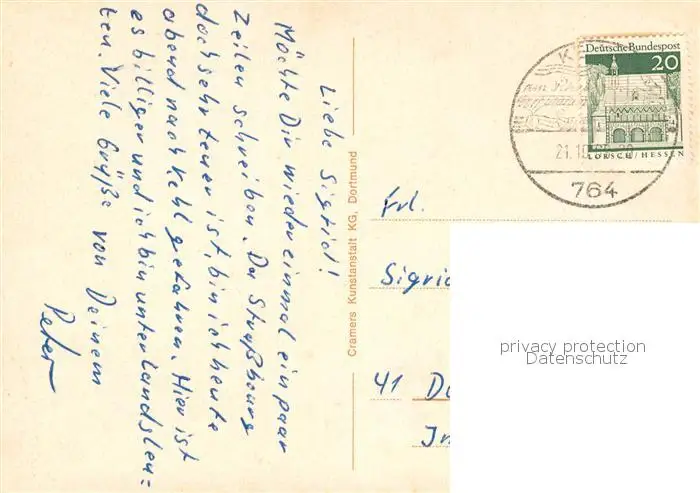 Liebe Sigrid!
Möchte Dir wieder einmal ein paar
Zeilen schreiben. Da Straßbourg
doch sehr teuer ist, bin ich heute
abend nach Kehl gefahren. Hier ist
es billiger und ich bin unter Landsleu=
ten. Viele Grüße von Deinem
Peter
Cramers Kunstanstalt KG, Dortmund
Deutsche Bundespost
20
LORSCH/HESSEN
764
Frl.
Sigrid
41
privacy protection
Datenschutz